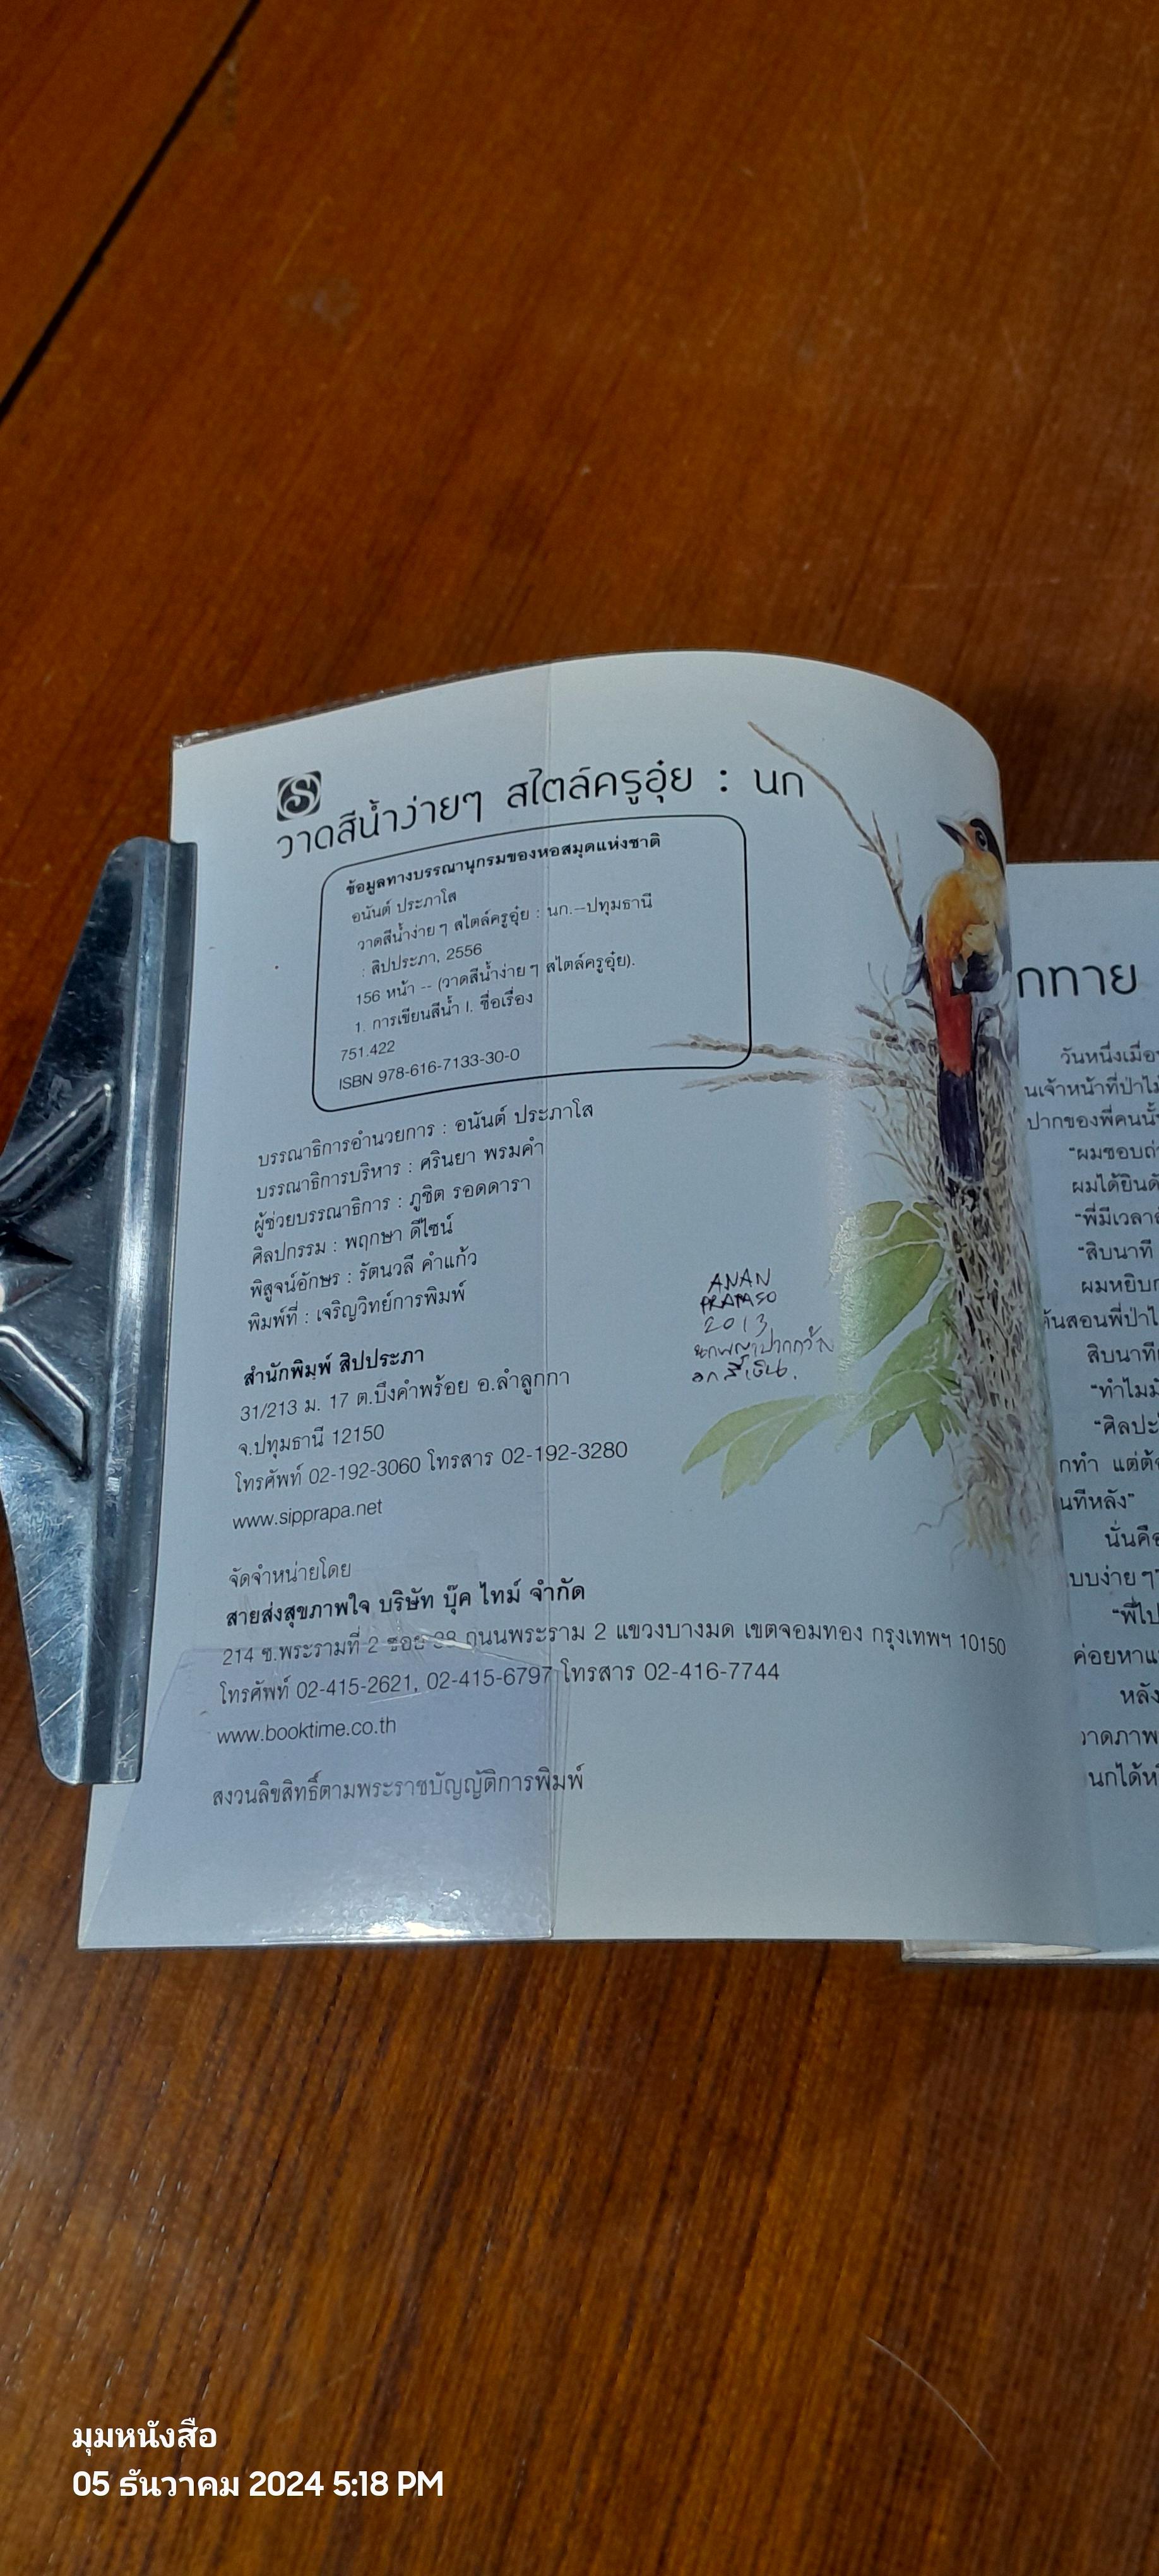 วาดสีน้ำง่ายๆ สไตล์ครูอุ๋ย : นก
ข้อมูลทางบรรณานุกรมของหอสมุดแห่งชาติ
อนันต์ ประภาโส
วาดสีน้ำง่าย ๆ สไตล์ครูอุ๋ย : นก.--ปทุมธานี
: สิปประภา, 2556
156 หน้า -- (วาดสีน้ำง่าย ๆ สไตล์ครูอุ๋ย).
1. การเขียนสีน้ำ I. ชื่อเรื่อง
751.422
ISBN 978-616-7133-30-0
บรรณาธิการอำนวยการ : อนันต์ ประภาโส
บรรณาธิการบริหาร : ศรินยา พรมคำ
ผู้ช่วยบรรณาธิการ : ภูชิต รอดดารา
ศิลปกรรม : พฤกษา ดีไซน์
พิสูจน์อักษร : รัตนวลี คำแก้ว
พิมพ์ที่ : เจริญวิทย์การพิมพ์
สำนักพิมพ์ สิปประภา
31/213 ม. 17 ต.บึงคำพร้อย อ.ลำลูกกา
จ.ปทุมธานี 12150
โทรศัพท์ 02-192-3060 โทรสาร 02-192-3280
www.sipprapa.net
จัดจำหน่ายโดย
สายส่งสุขภาพใจ บริษัท บุ๊ค ไทม์ จำกัด
214 ซ.พระรามที่ 2 ซอย 38 ถนนพระราม 2 แขวงบางมด เขตจอมทอง กรุงเทพฯ 10150
โทรศัพท์ 02-415-2621, 02-415-6797 โทรสาร 02-416-7744
www.booktime.co.th
สงวนลิขสิทธิ์ตามพระราชบัญญัติการพิมพ์
ANAN
PRAPASO
2013
นกพญาปากกว้าง
อกสีเงิน.
กทาย
วันหนึ่งเมื่อ
นเจ้าหน้าที่ป่าไม้
ปากของพี่คนนั้น
"ผมชอบถ่
ผมได้ยินดั
"พี่มีเวลา
"สิบนาที
ผมหยิบ
สอนพี่ป่าไ
สิบนาที
"ทำไมมั
"ศิลปะ
กทำ แต่ต้
นทีหลัง"
นั่นคือ
บบง่าย ๆ
"พี่ไป
ค่อยหา
หลัง
วาดภาพ
นกได้ห
มุมหนังสือ
05 ธันวาคม 2024 5:18 PM